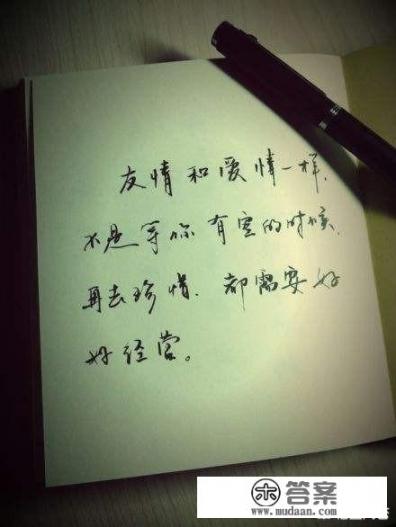 友情和爱情一样,
不是等你有空的时候,
再去珍惜.都需要好
好经营。
答案
www.mudaan.com